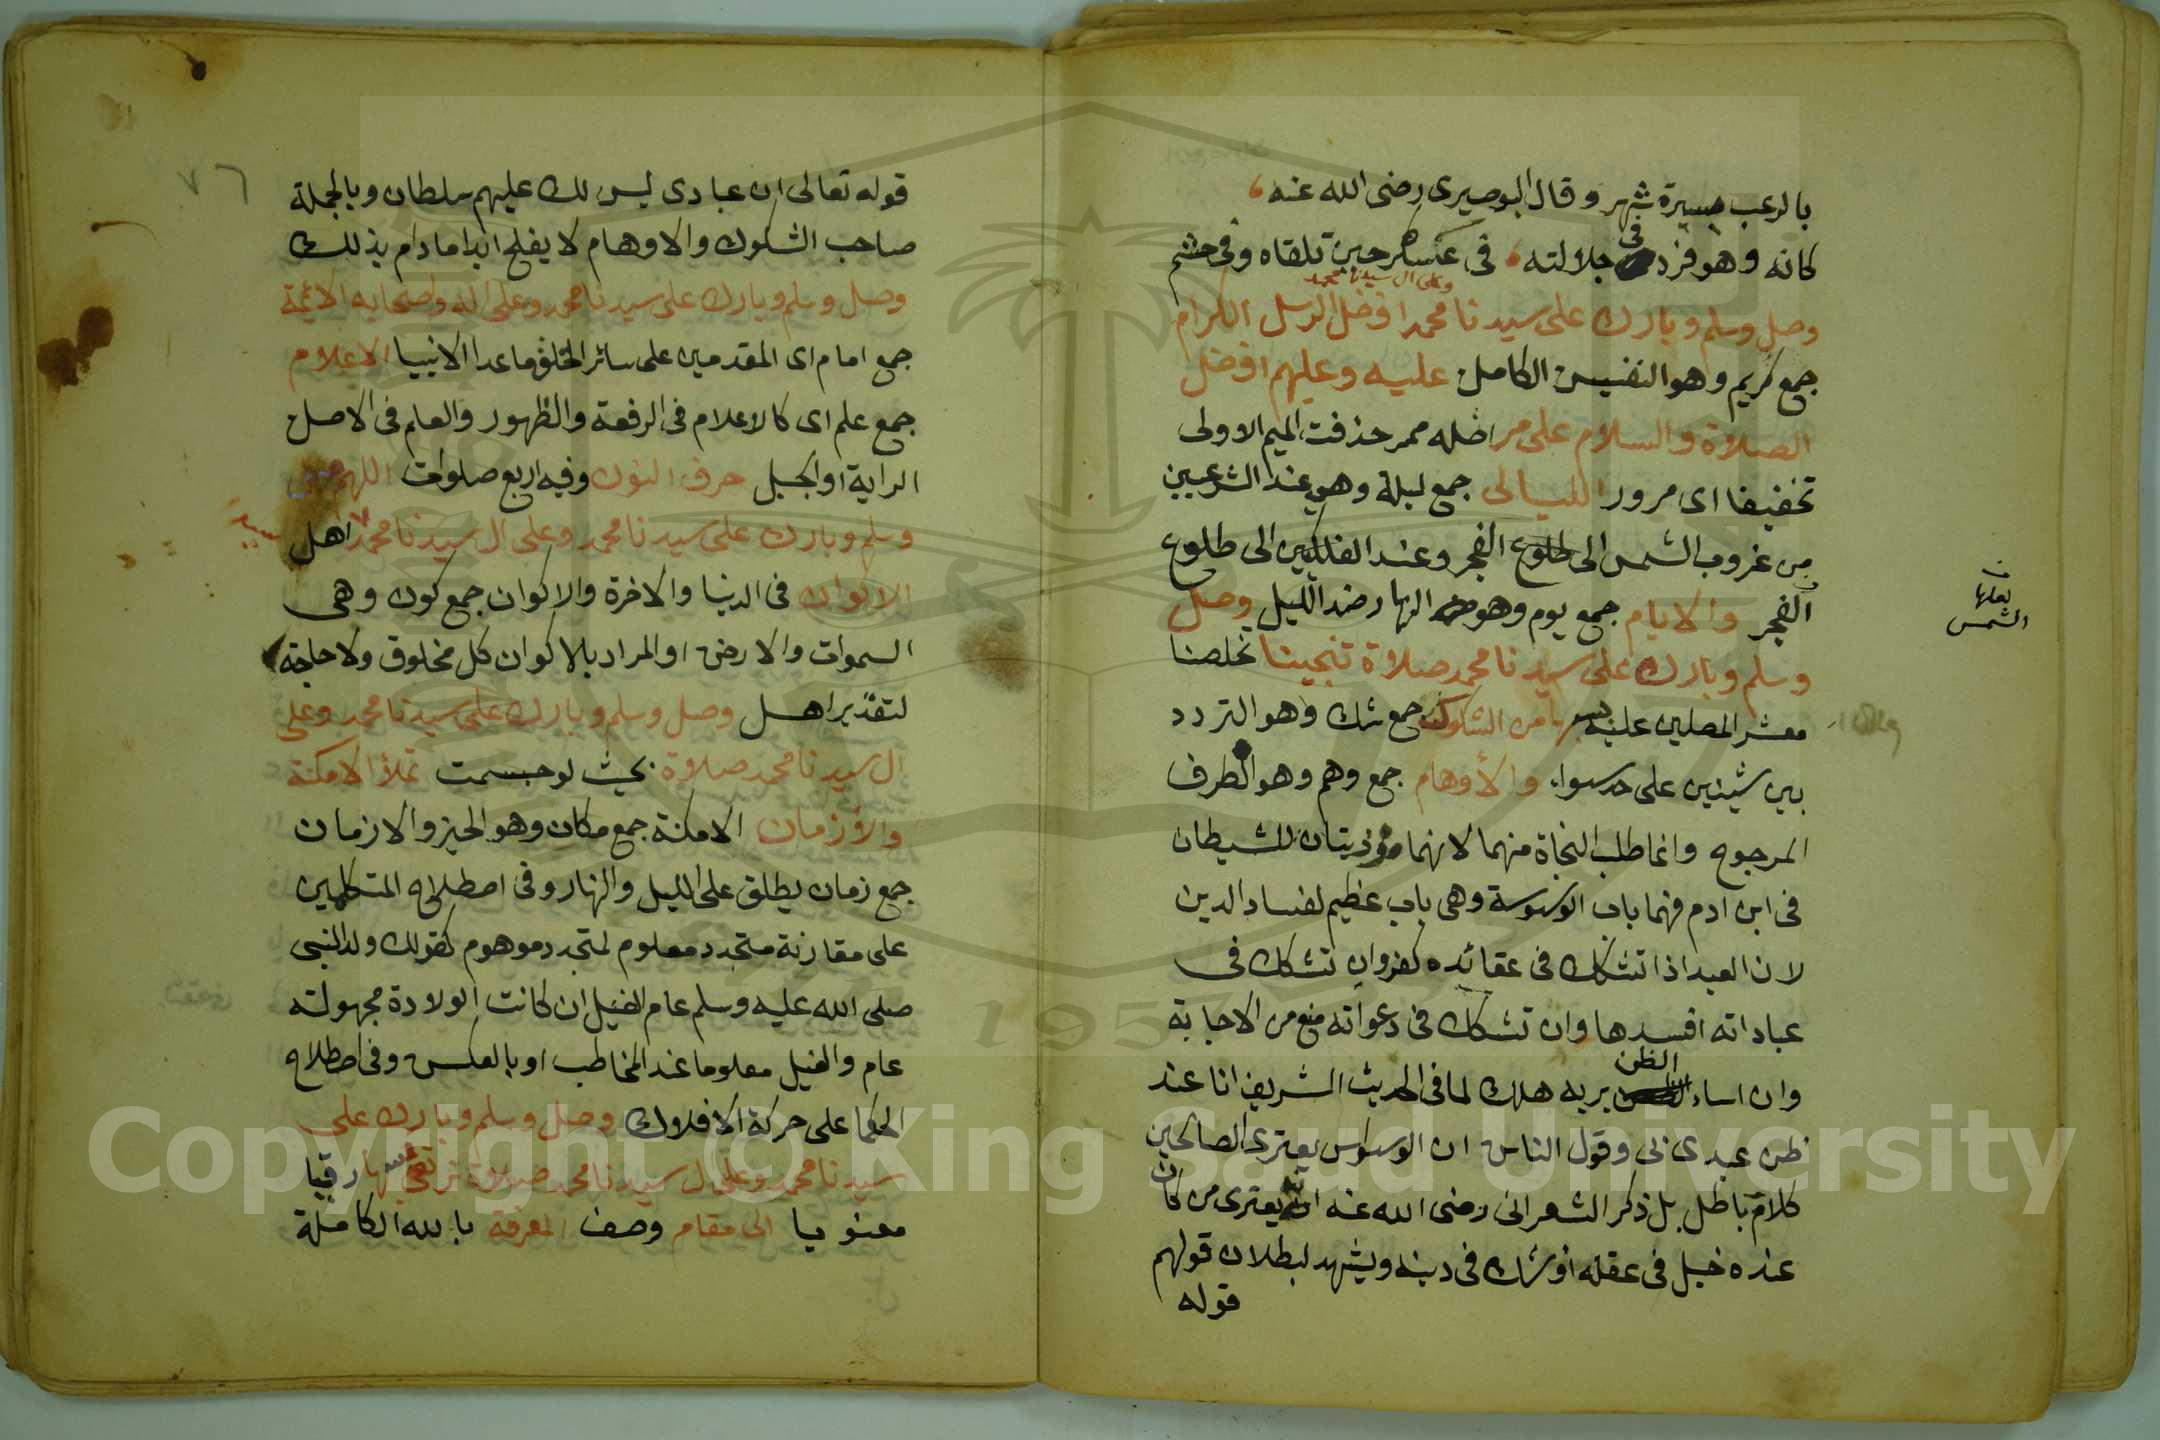 بالرعب مسيرة شهر وقال البوصيرى رضى الله عنه
كانه وهو فرد فى جلالته فى عسكر حين تلقاه وفى حشم
وعلى ال سيدنا محمد
وصل وسلم وبارك على سيدنا محمد افضل الرسل الكرام
جمع كريم وهو النفيس الكامل عليه وعليهم افضل
الصلاة والسلام على مر اصله ممرر حذفت الميم الاولى
تخفيفا اى مرور الليالى جمع ليلة وهى عند الشرعيين
من غروب الشمس الى طلوع الفجر وعند الفلكيين الى طلوع
بعلها
الشمس
الفجر والايام جمع يوم وهو النهار ضد الليل وصل
وسلم وبارك على سيدنا محمد صلاة تنجينا تخلصنا
معشر المصلين عليه بها من الشكوك جمع شك وهو التردد
بين شيئين على حد سواء والأوهام جمع وهم وهو الطرف
المرجوح وانما طلب النجاة منهما لانهما مؤذيتان للشيطان
فى ابن ادم فهما باب الوسوسة وهى باب عظيم لفساد الدين
لان العبد اذا تشكك فى عقائده كفر وان تشكك فى
عباداته افسدها وان تشكك فى دعواته منع من الاجابة
وان اساء الظن بربه هلك لما فى الحديث الشريف انا عند
ظن عبدى بى وقول الناس ان الوسواس يعترى الصالحين
كلام باطل بل ذكر الشعرانى رضى الله عنه انه يعترى من كان
عنده خبل فى عقله او شك فى دينه ويشهد لبطلان قولهم
قوله
٧٦
قوله تعالى ان عبادى ليس لك عليهم سلطان وبالجملة
صاحب الشكوك والاوهام لا يفلح ابدا مادام بذلك
وصل وسلم وبارك على سيدنا محمد وعلى اله واصحابه الائمة
جمع امام اى المقدمين على سائر الخلق ما عدا الانبيا الاعلام
جمع علم اى كالاعلام فى الرفعة والظهور والعلم فى الاصل
الراية او الجبل حرف النون وفيه اربع صلوات اللهم صل
وسلم وبارك على سيدنا محمد وعلى ال سيدنا محمد اهل
سيد
الاكوان فى الدنيا والاخرة والاكوان جمع كون وهى
السموات والارض او المراد بالاكوان كل مخلوق ولا حاجة
لتقدير اهل وصل وسلم وبارك على سيدنا محمد وعلى
ال سيدنا محمد صلاة بحيث لو جسمت تملأ الامكنة
والأزمان الامكنة جمع مكان وهو الحيز والازمان
جمع زمان يطلق على الليل والنهار وفى اصطلاح المتكلمين
على مقارنة متجدد معلوم لمتجدد موهوم كقولك ولد النبى
صلى الله عليه وسلم عام الفيل ان كانت الولادة مجهولته
عام والفيل معلوما عند المخاطب او بالعكس وفى اصطلاح
الحكما على حركة الافلاك وصل وسلم وبارك على
سيدنا محمد وعلى ال سيدنا محمد صلاة نرتقى بها رقيا
معنويا الى مقام وصف المعرفة بالله الكاملة
Copyright © King Saud University
1957